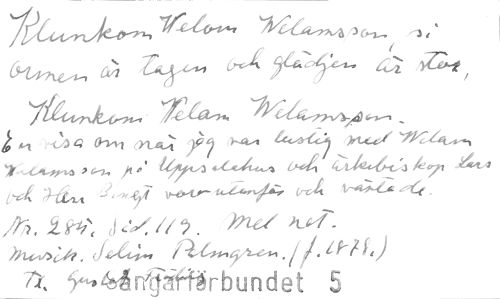 Klunkom Welam Welamsson, si
ormen är tagen och glädjen är stor,
Klunkom Welam Welamsson.
En visa om när jag var lustig med Welam
Welamsson på Uppsalahus och ärkebiskop Lars
och Herr Bengt voro utanför och väntade.
Nr. 284. Sid. 119. Mel not.
musik. Selim Palmgren. (f. 1878.)
Tx. Gustaf Fröding
Sångarförbundet 5